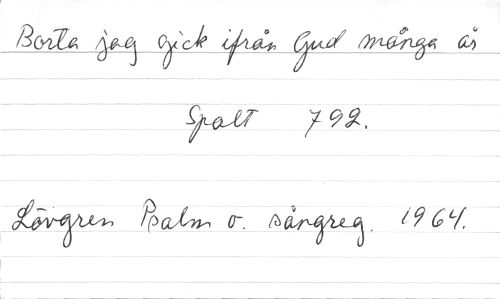 Borta jag gick ifrån Gud många år
Spalt 792.
Lövgren Psalm o. sångreg. 1964.